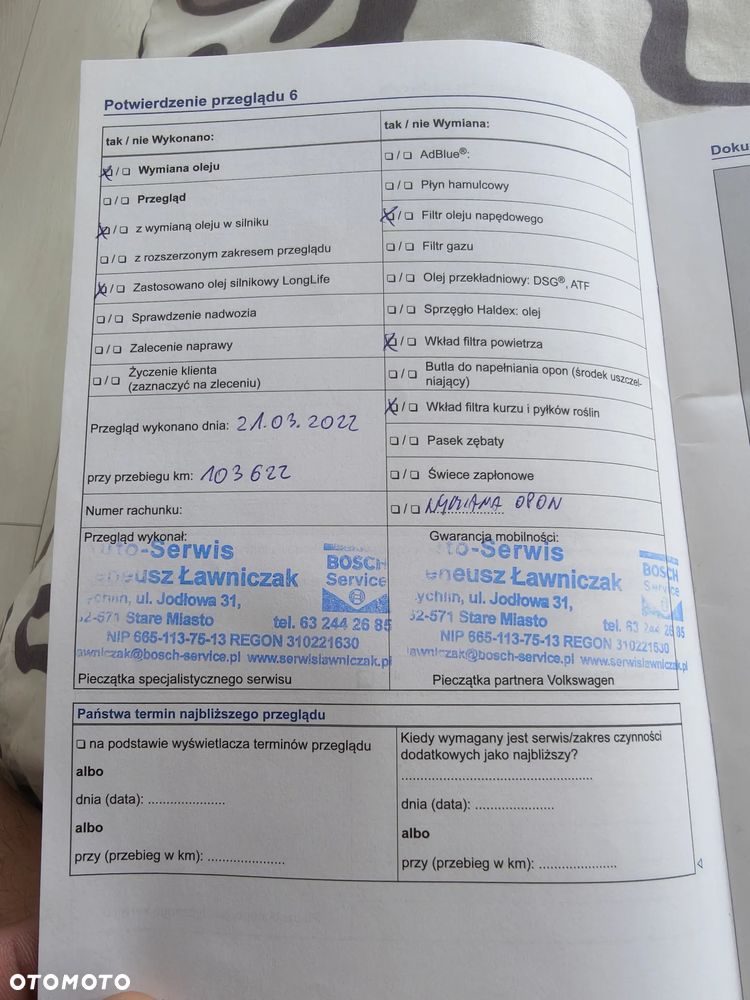 Potwierdzenie przeglądu 6
tak / nie Wykonano:
☒/☐ Wymiana oleju
☐/☐ Przegląd
☒/☐ z wymianą oleju w silniku
☐/☐ z rozszerzonym zakresem przeglądu
☒/☐ Zastosowano olej silnikowy LongLife
☐/☐ Sprawdzenie nadwozia
☐/☐ Zalecenie naprawy
☐/☐ Życzenie klienta
(zaznaczyć na zleceniu)
Przegląd wykonano dnia: 21.03.2022
przy przebiegu km: 103622
Numer rachunku:
tak / nie Wymiana:
☐/☐ AdBlue®:
☐/☐ Płyn hamulcowy
☒/☐ Filtr oleju napędowego
☐/☐ Filtr gazu
☐/☐ Olej przekładniowy: DSG®, ATF
☐/☐ Sprzęgło Haldex: olej
☒/☐ Wkład filtra powietrza
☐/☐ Butla do napełniania opon (środek uszczel-
niający)
☒/☐ Wkład filtra kurzu i pyłków roślin
☐/☐ Pasek zębaty
☐/☐ Świece zapłonowe
☐/☐ WYMIANA OPON
Przegląd wykonał:
-Serwis
Ławniczak
BOSCH
Service
ul. Jodłowa 31,
Stare Miasto
tel. 63 244 26 85
NIP 665-113-75-13 REGON 310221630
@bosch-service.pl www.serwislawniczak.pl
Pieczątka specjalistycznego serwisu
Gwarancja mobilności:
-Serwis
Ławniczak
BOSCH
Service
ul. Jodłowa 31,
Stare Miasto
tel. 63 244 26 85
NIP 665-113-75-13 REGON 310221630
@bosch-service.pl www.serwislawniczak.pl
Pieczątka partnera Volkswagen
Państwa termin najbliższego przeglądu
☐ na podstawie wyświetlacza terminów przeglądu
albo
dnia (data): .....................
albo
przy (przebieg w km): .....................
Kiedy wymagany jest serwis/zakres czynności
dodatkowych jako najbliższy?
....................................................
dnia (data): .....................
albo
przy (przebieg w km): .....................
Doku
OTOMOTO